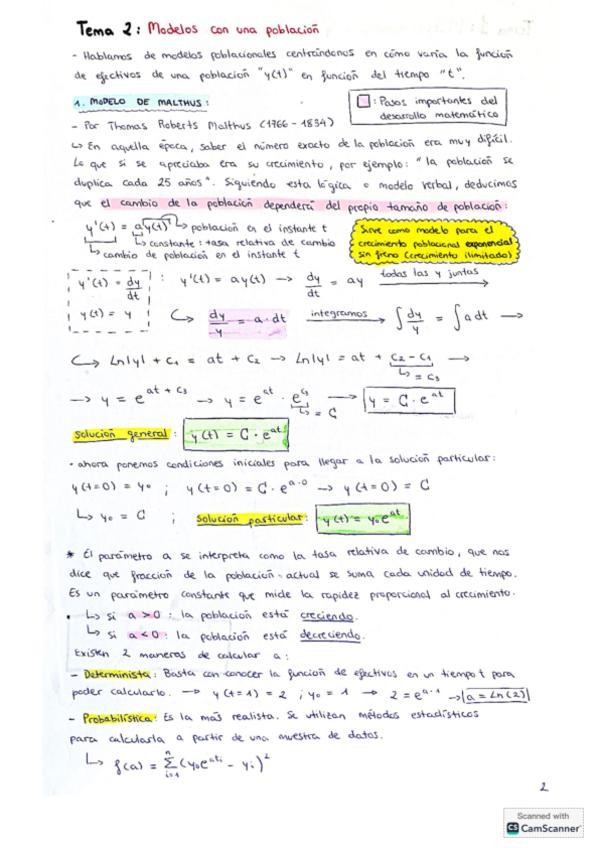 Tema 2: Modelos con una población
- Hablamos de modelos poblacionales centrándonos en cómo varía la función
de efectivos de una población "y(t)" en función del tiempo "t".
1. MODELO DE MALTHUS:
□: Pasos importantes del
desarrollo matemático
- Por Thomas Roberts Malthus (1766 - 1834)
↳ En aquella época, saber el número exacto de la población era muy difícil.
Lo que si se apreciaba era su crecimiento, por ejemplo: "la población se
duplica cada 25 años". Siguiendo esta lógica o modelo verbal, deducimos
que el cambio de la población dependerá del propio tamaño de población:
y'(t) = a y(t) ↳ población en el instante t
↳ constante: tasa relativa de cambio
↳ cambio de población en el instante t
Sirve como modelo para el
crecimiento poblacional exponencial
sin freno (crecimiento ilimitado)
y'(t) = dy/dt : y'(t) = ay(t) → dy/dt = ay todas las y juntas →
y(t) = y
↳ dy/y = a·dt integramos → ∫ dy/y = ∫ a dt →
↳ Ln|y| + C₁ = at + C₂ → Ln|y| = at + C₂ - C₁ →
↳ = C₃
→ y = e^(at + C₃) → y = e^(at) · e^(C₃) → y = C · e^(at)
↳ = C
Solución general: y(t) = C · e^(at)
• ahora ponemos condiciones iniciales para llegar a la solución particular:
y(t=0) = y₀ ; y(t=0) = C · e^(a·0) → y(t=0) = C
↳ y₀ = C ; Solución particular: y(t) = y₀e^(at)
* El parámetro a se interpreta como la tasa relativa de cambio, que nos
dice que fracción de la población actual se suma cada unidad de tiempo.
Es un parámetro constante que mide la rapidez proporcional al crecimiento.
• ↳ si a > 0 : la población está creciendo.
↳ si a < 0 : la población está decreciendo.
Existen 2 maneras de calcular a:
- Determinista: Basta con conocer la función de efectivos en un tiempo t para
poder calcularlo. → y(t=1) = 2 ; y₀ = 1 → 2 = e^(a·1) → a = Ln(2)
- Probabilística: Es la más realista. Se utilizan métodos estadísticos
para calcularla a partir de una muestra de datos.
↳ f(a) = Σ_(i=1)^n (y₀e^(atᵢ) - yᵢ)²
2
Scanned with
CS CamScanner